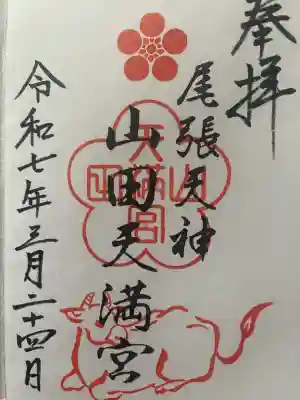 奉拝
尾張天神
山田天満宮
令和七年三月二十四日